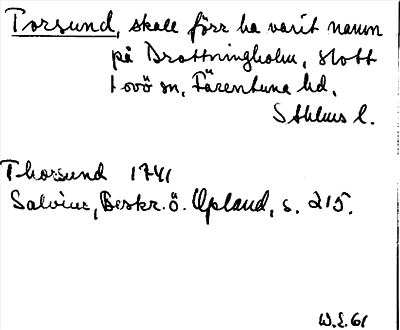 Torsund, skall förr ha varit namn
på Drottningholm, slott
Lovö sn, Färentuna hd,
Sthlms l.
Thorsund 1741
Salvius, Beskr. ö. Upland, s. 215.
W.L. 61